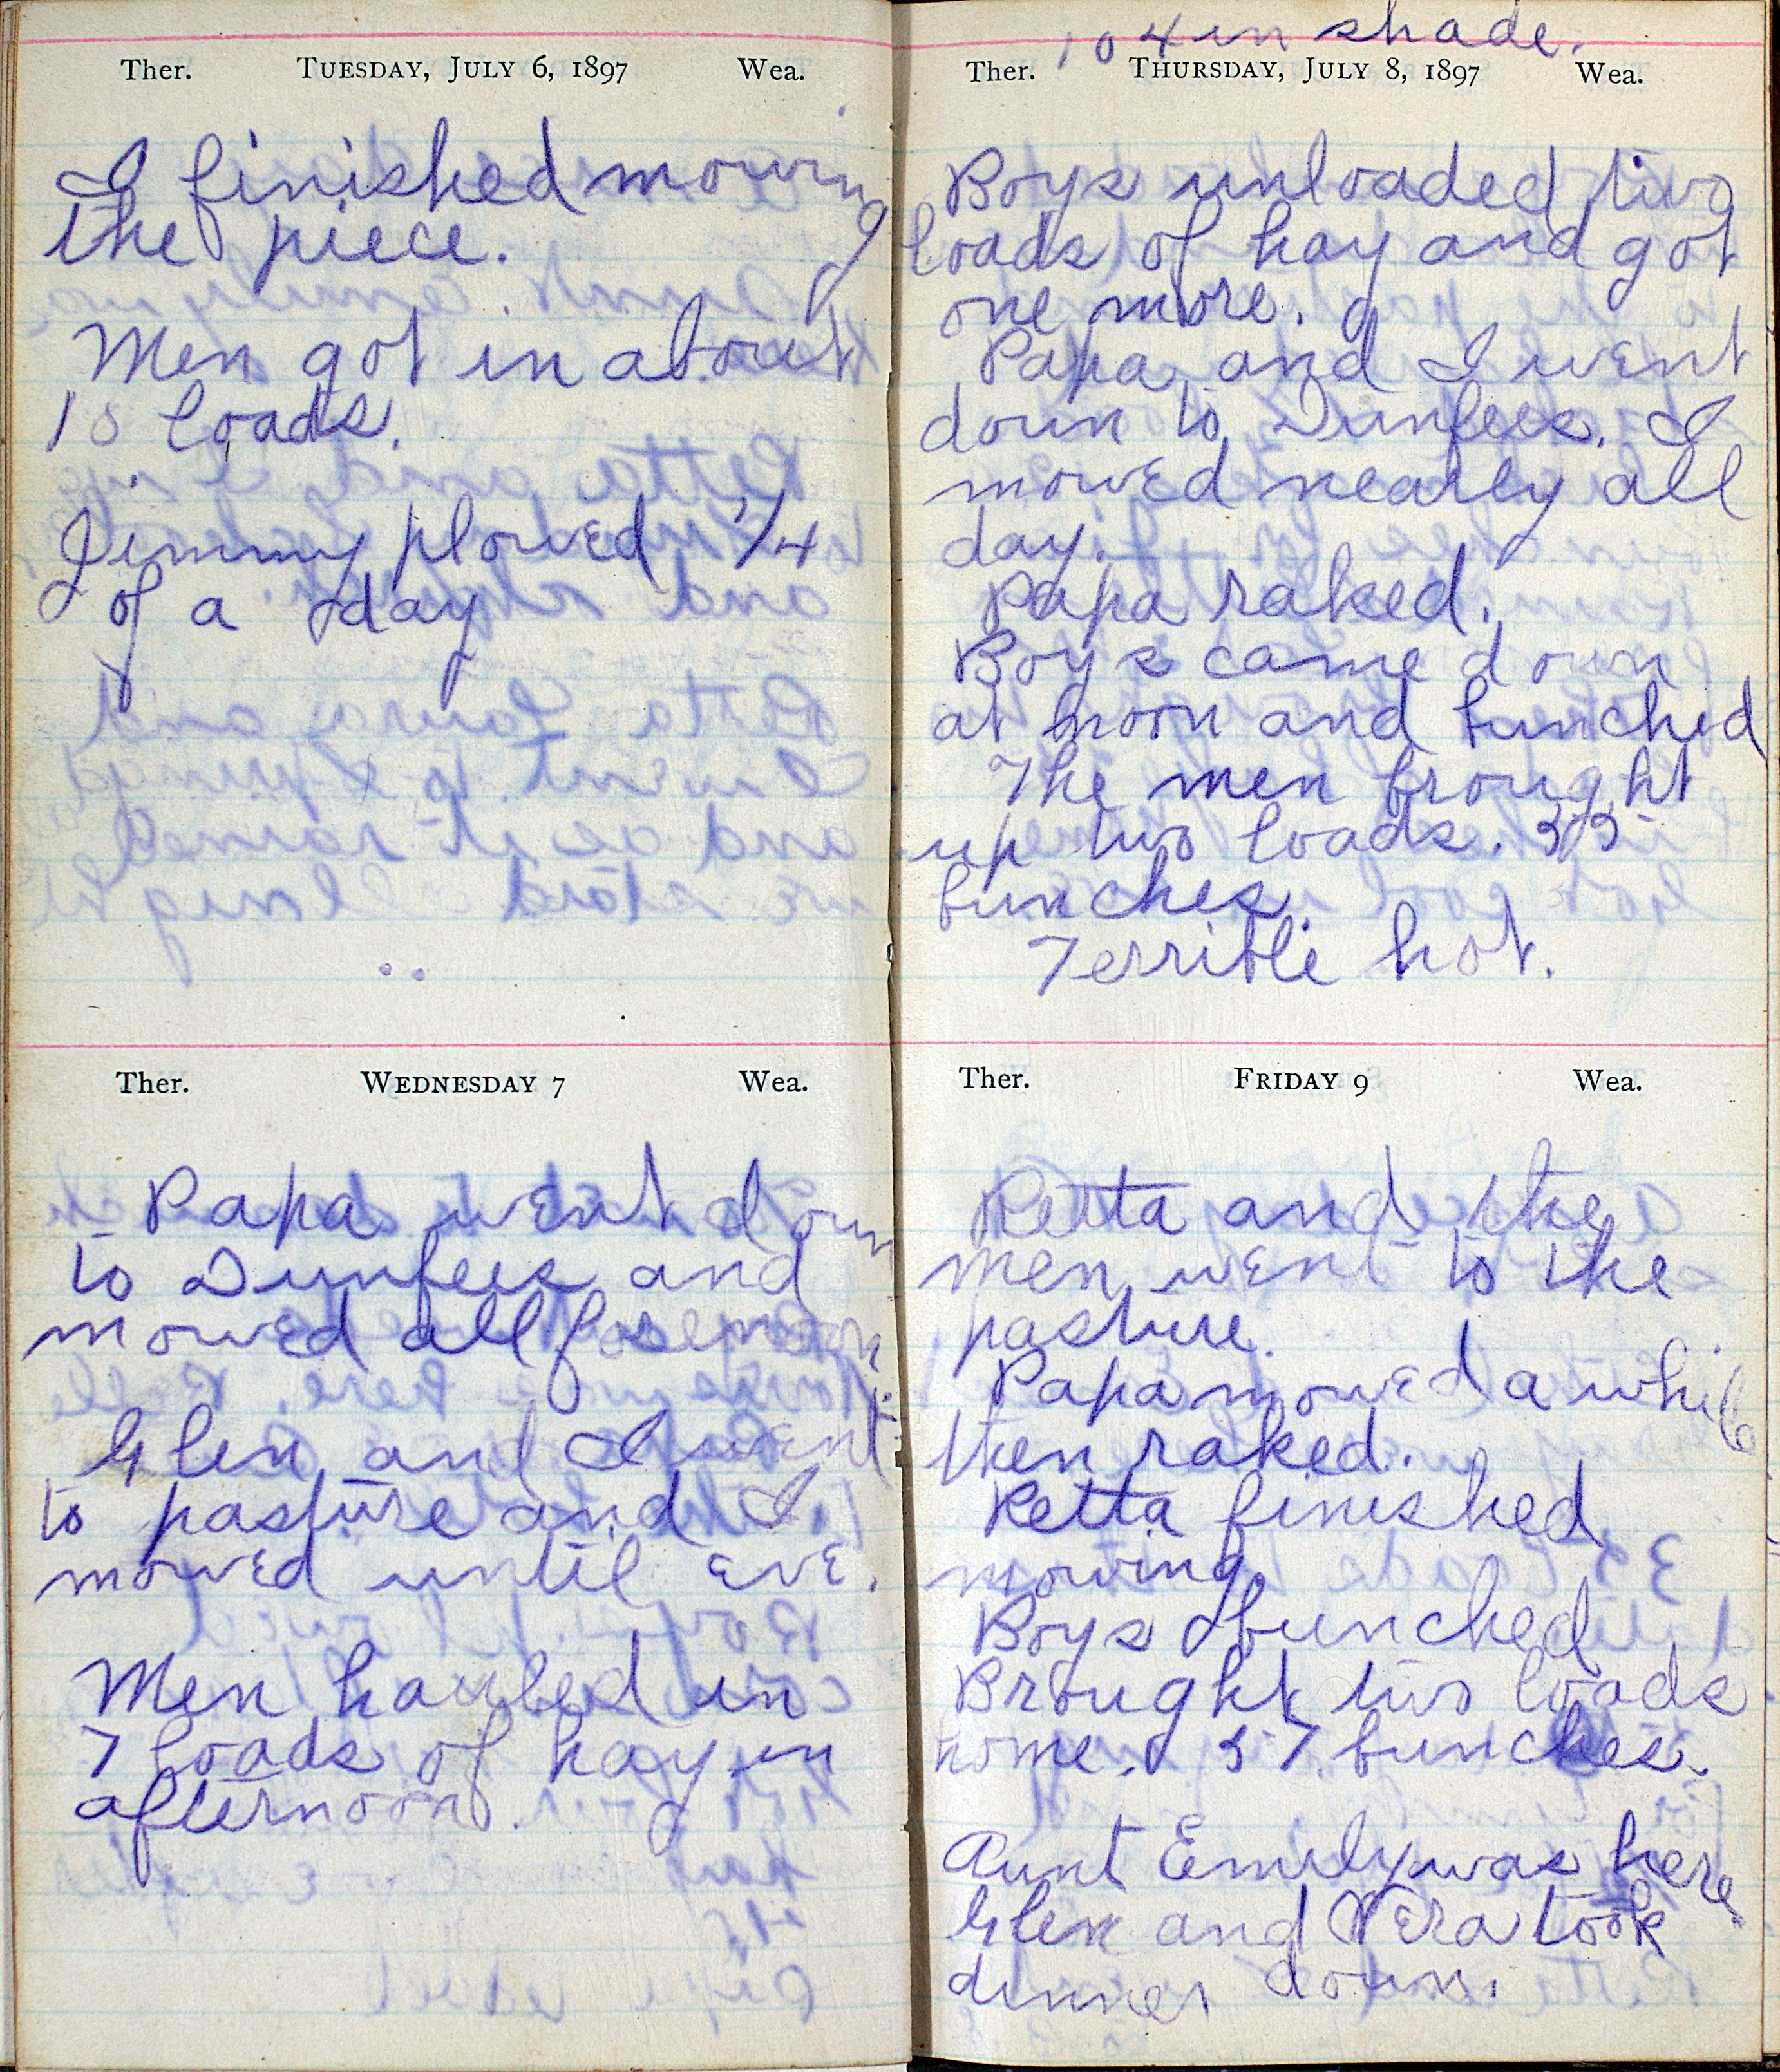 Ther. TUESDAY, JULY 6, 1897 Wea.
I finished mowing
the piece.
Men got in about
10 loads.
Jimmy plowed 3/4
of a day
Ther. WEDNESDAY 7 Wea.
Papa went down
to Dunfees and
mowed all forenoon.
Glen and I went
to pasture and I
mowed until eve.
Men hauled in
7 loads of hay in
afternoon.
104 in shade.
Ther. THURSDAY, JULY 8, 1897 Wea.
Boys unloaded two
loads of hay and got
one more.
Papa and I went
down to Dunfees. I
mowed nearly all
day.
Papa raked.
Boys came down
at noon and bunched
The men brought
up two loads. 55
bunches.
Terrible hot.
Ther. FRIDAY 9 Wea.
Retta and the
men went to the
pasture.
Papa mowed a while
then raked.
Retta finished
mowing
Boys bunched
Brought two loads
home. 57 bunches.
Aunt Emily was here.
Glen and Vera took
dinner down.